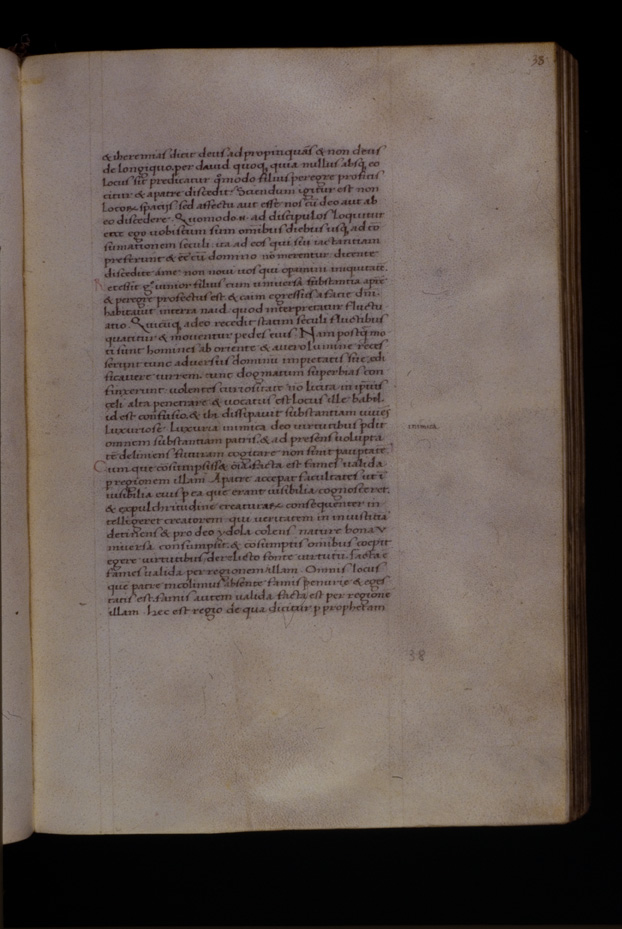 38
& iheremias dicit deus ad propinquās & non deus
de longiquo, per david quoq, quia nullus absq, eo
locus sit predicatur q̄modo filius peregre profici
citur & a patre discedit. Sciendum igitur est non
locoꝝ spatijs sed affectu aut esse nos cū deo aut ab
eo discedere. Quomodo .n. ad discipulos loquitur
ecce ego vobiscum sum omnibus diebus usq, ad cō
sumationem seculi. ita ad eos qui sui iactantiam
preferunt & eē cū domino nō merentur dicente
discedite a me non novi vos qui opamini iniquitatē.
Recessit g iunior filius cum universa substantia a pr̄e
& peregre profectus est & caim egressus a facie dn̄i.
habitavit in terra naid. quod interpretatur fluctu
atio. Quicūq, a deo recedit statim seculi fluctibus
quatitur & moventur pedes eius. Nam postq̄ mo
ti sunt homines ab oriente & a vero lumine reces
serunt tunc adversus dominū impietatis sue, edi
ficavere turrem. tunc dogmatum superbias con
finxerunt. volentes curiositate nō licita in ipsius
celi alta penetrare & vocatus est locus ille babel.
id est confusio, & ibi dissipavit substantiam vivēs
luxuriose. Luxuria inimica deo virtutibus pdit
omnem substantiam patris, & ad presens volupta
te deliniens futuram cogitare non sinit paupertatē.
Cum que cōsumpsisset oīa, facta est fames valida
p regionem illam. A patre acceperat facultates ut ī
visibilia eius p ea que erant visibilia cognosceret,
& ex pulchritudine creaturaꝝ consequenter in
telligeret creatorem. qui veritatem in iniustitia
detinens & pro deo ydola colens. nature bona v
niversa consumpsit. & cosumptis omibus coepit
egere virtutibus, derelicto fonte virtutū. facta ē
fames valida per regionem illam. Omnis locus
que patre incolimus absente famis penurie & eges
tatis est, famis autem valida facta est per regione
illam. hec est regio de qua dicitur p prophetam
38